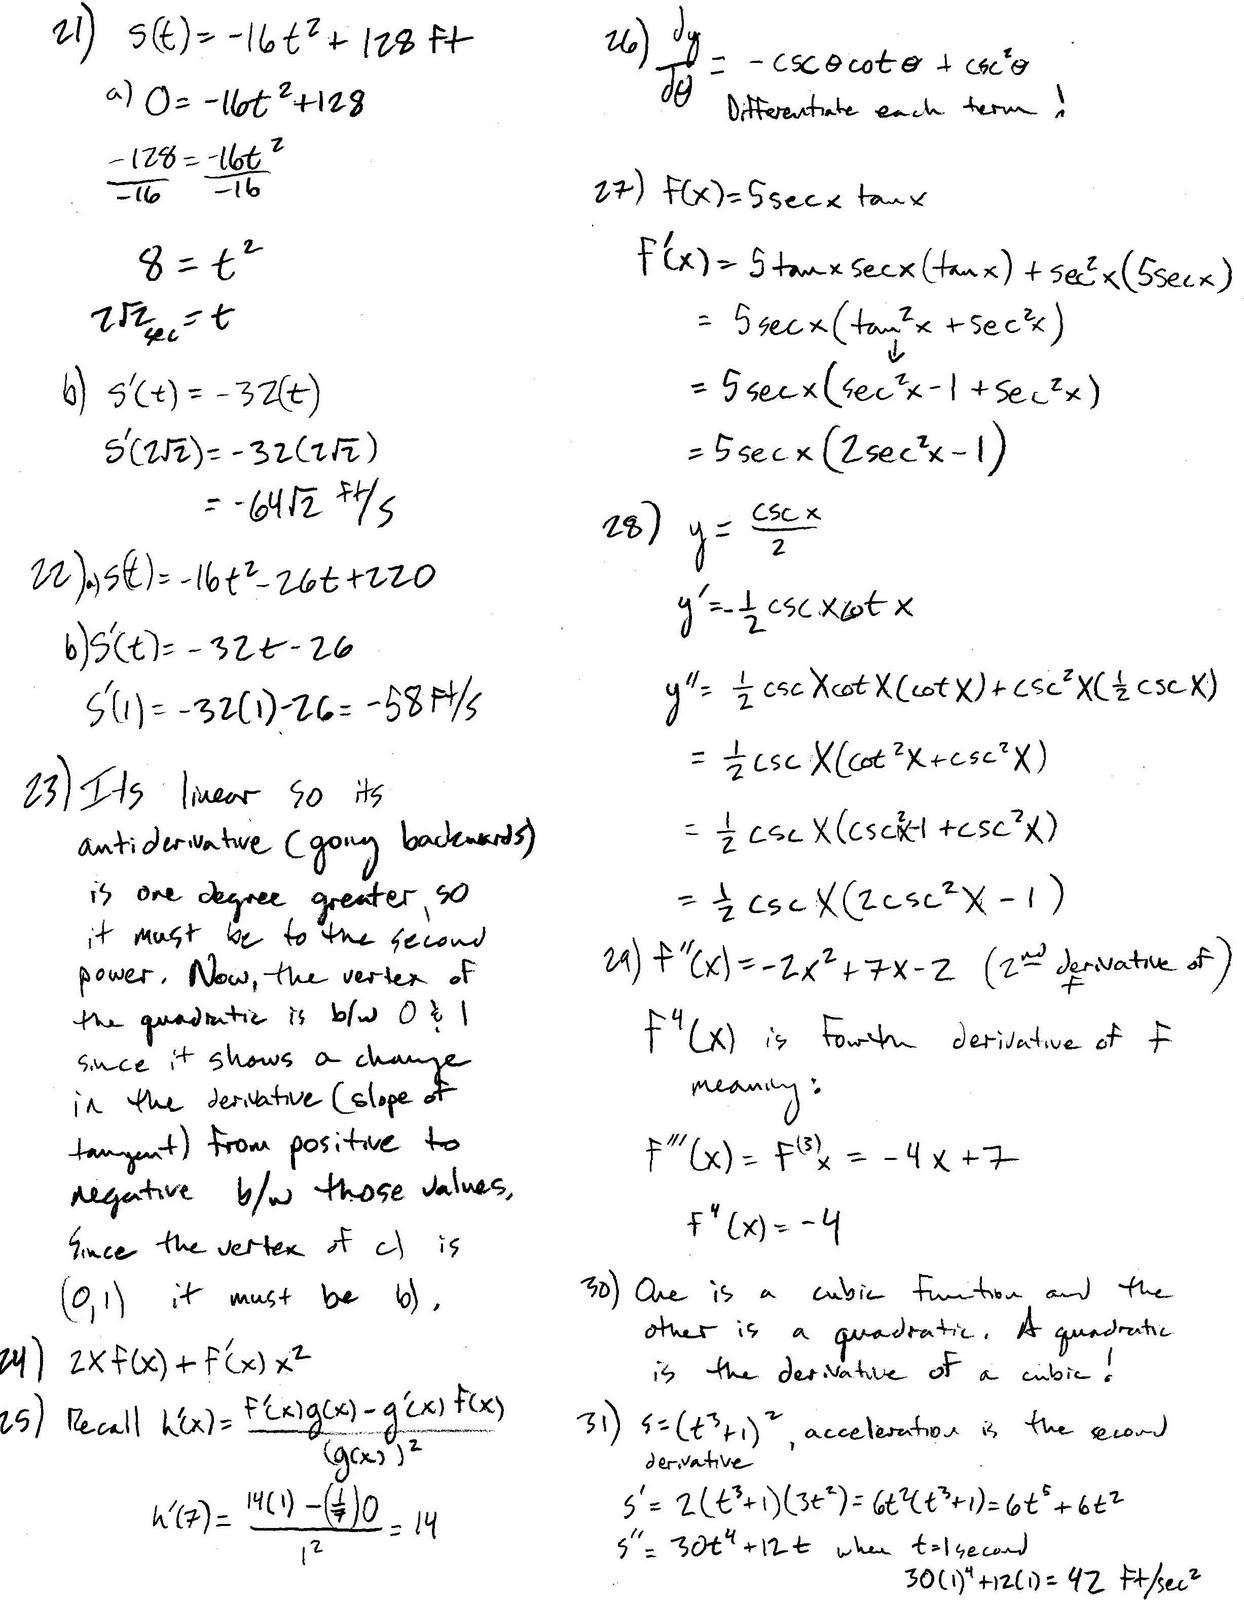 21) s(t) = -16t² + 128 ft
a) 0 = -16t² + 128
-128/-16 = -16t²/-16
8 = t²
2√2 sec = t
b) s'(t) = -32(t)
s'(2√2) = -32(2√2)
= -64√2 ft/s
22) a) s(t) = -16t² - 26t + 220
b) s'(t) = -32t - 26
s'(1) = -32(1) - 26 = -58 ft/s
23) Its linear so its
antiderivative (going backwards)
is one degree greater, so
it must be to the second
power. Now, the vertex of
the quadratic is b/w 0 & 1
since it shows a change
in the derivative (slope of
tangent) from positive to
negative b/w those values,
Since the vertex of c) is
(0,1) it must be b).
24) 2xf(x) + f'(x)x²
25) Recall h'(x) = f'(x)g(x) - g'(x)f(x) / (g(x))²
h'(7) = 14(1) - (1/7)0 / 1² = 14
26) dy/dθ = -cscθcotθ + csc²θ
Differentiate each term!
27) f(x) = 5secx tanx
f'(x) = 5tanx secx(tanx) + sec²x(5secx)
= 5secx(tan²x + sec²x)
↓
= 5secx(sec²x - 1 + sec²x)
= 5secx(2sec²x - 1)
28) y = csc x / 2
y' = -1/2 csc x cot x
y'' = 1/2 csc x cot x(cot x) + csc²x(1/2 csc x)
= 1/2 csc x(cot²x + csc²x)
= 1/2 csc x(csc²x-1 + csc²x)
= 1/2 csc x(2csc²x - 1)
29) f''(x) = -2x² + 7x - 2 (2nd derivative of
f)
f⁴(x) is fourth derivative of f
meaning:
f'''(x) = f⁽³⁾x = -4x + 7
f⁴(x) = -4
30) One is a cubic function and the
other is a quadratic. A quadratic
is the derivative of a cubic!
31) s = (t³+1)², acceleration is the second
derivative
s' = 2(t³+1)(3t²) = 6t²(t³+1) = 6t⁵ + 6t²
s'' = 30t⁴ + 12t when t=1second
30(1)⁴ + 12(1) = 42 ft/sec²